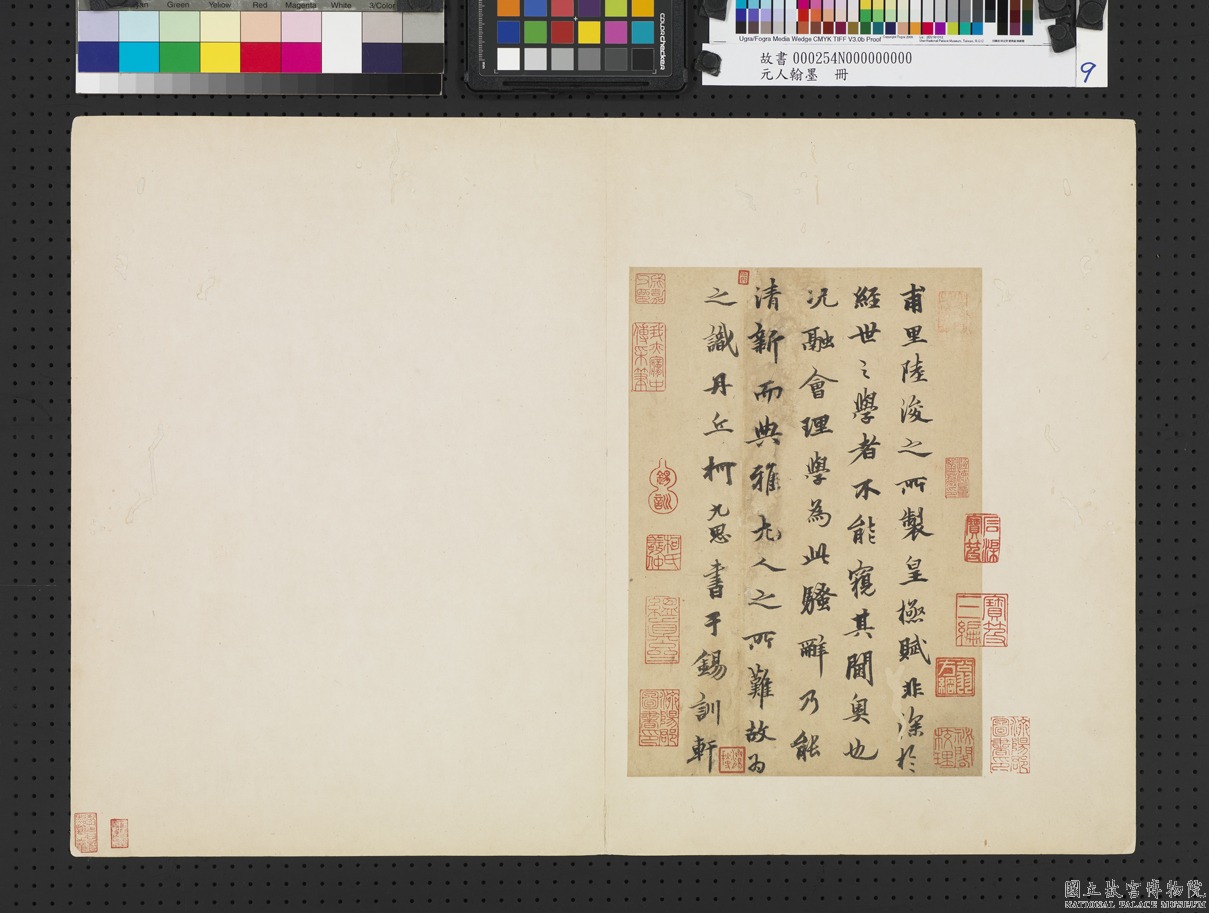 Green
Yellow
Red
Magenta
White
3/Color
colorchecker
Ugra/Fogra Media Wedge CMYK TIFF V3.0b Proof
故書 000254N000000000
元人翰墨 冊
9
甫里陸浚之所製皇極賦非深於
經世之學者不能窺其閫奧也
況融會理學為此騷辭乃能
清新而典雅尤人之所難故為
之識丹丘柯九思書于錫訓軒
錫訓
柯氏敬仲
寶笈三編
國立故宮博物院
NATIONAL PALACE MUSEUM